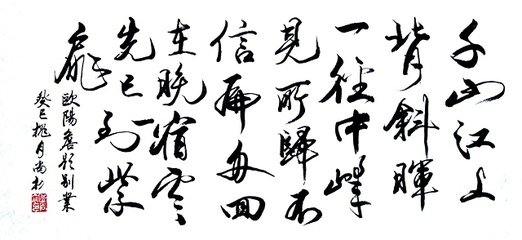 千山江上
背斜暉
一徑中峰
見所歸不
信扁舟回
在晚宿雲
先已到柴
扉
歐陽詹題别業
癸巳桃月尚